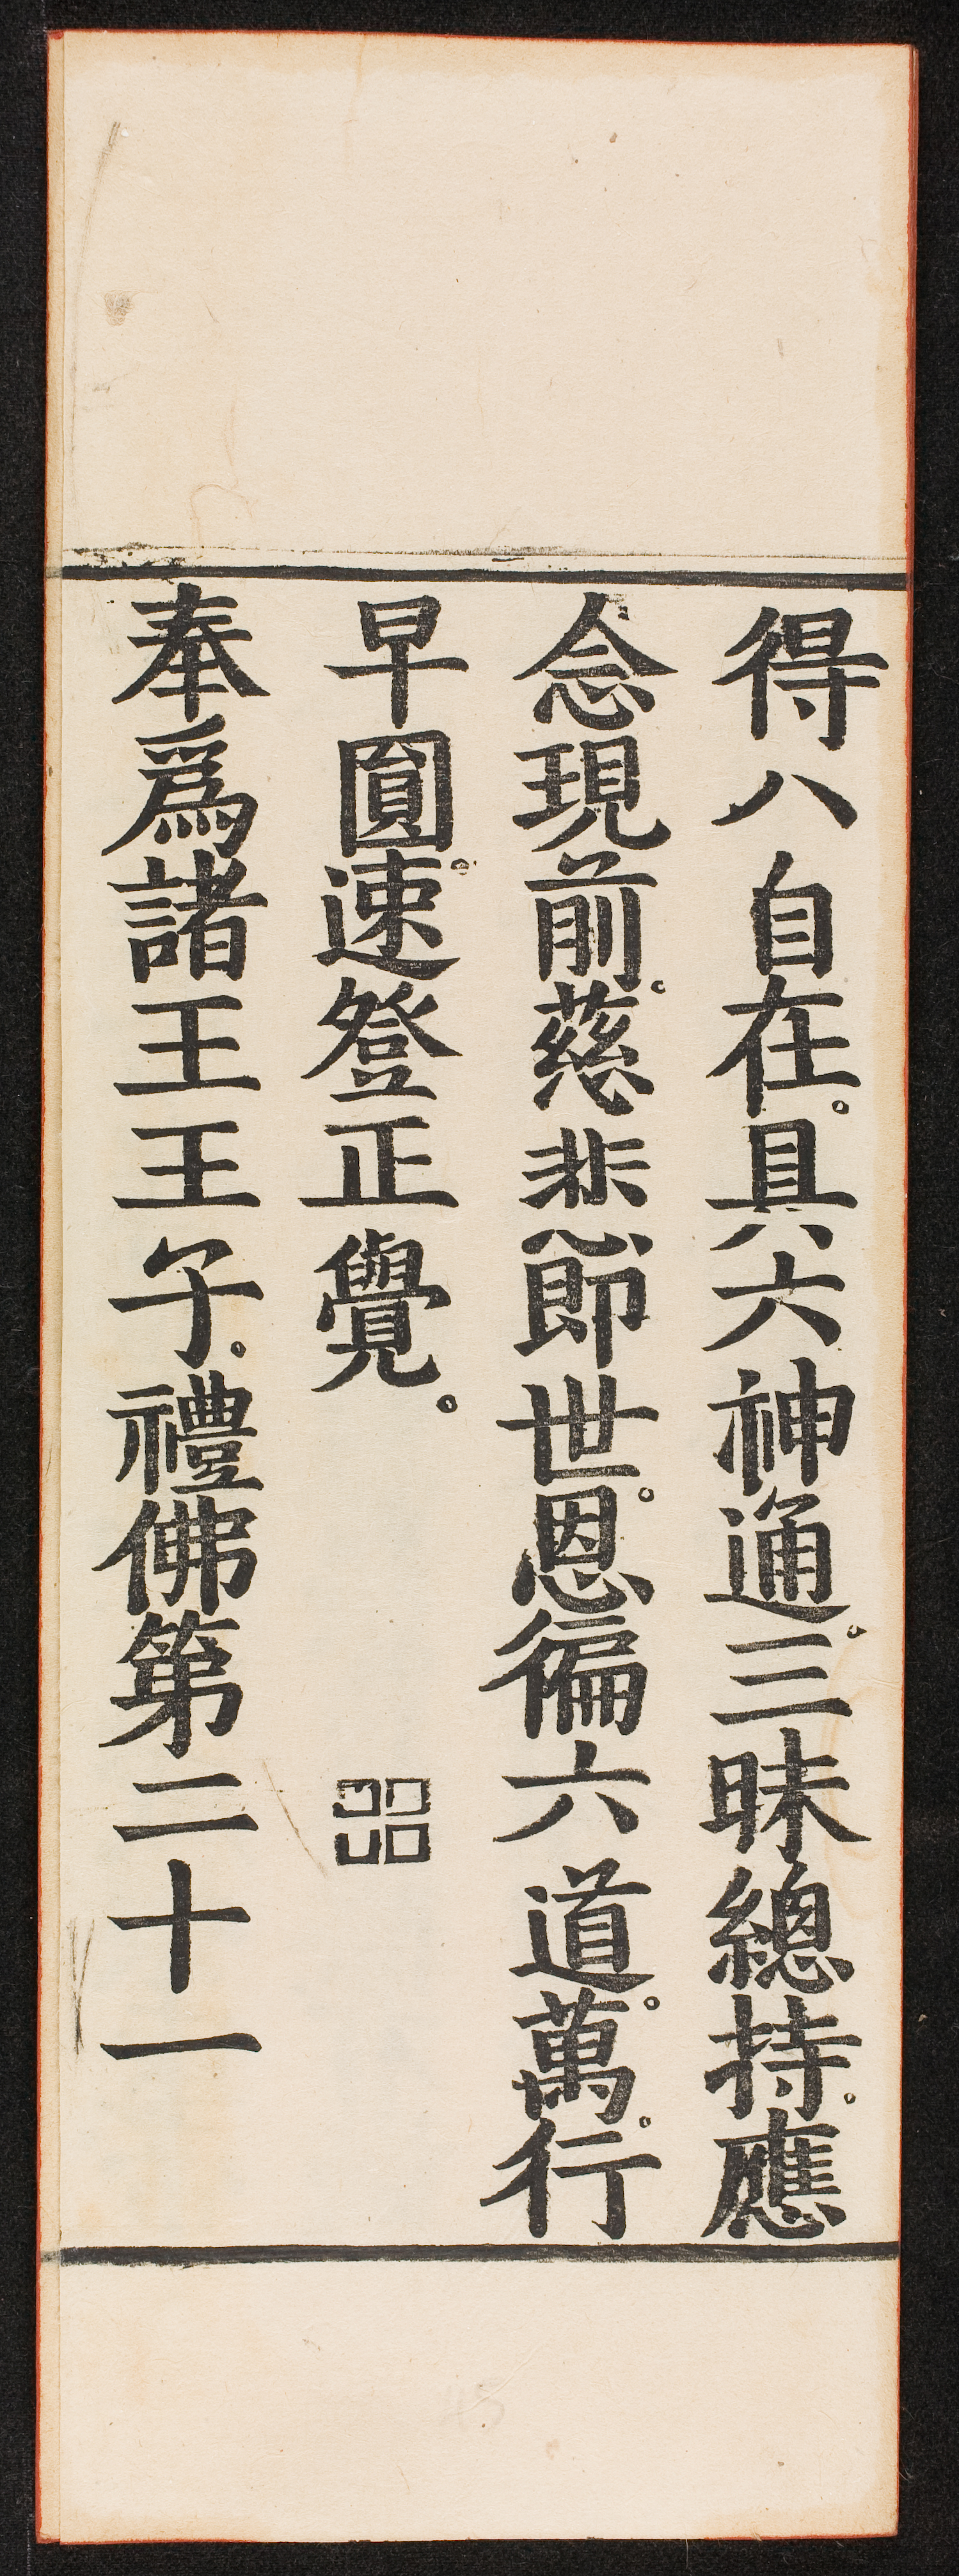 得八自在。具六神通。三昧總持。應
念現前。慈悲節世。恩徧六道。萬行。
早圓。速登正覺。
奉爲諸王王子。禮佛第二十一